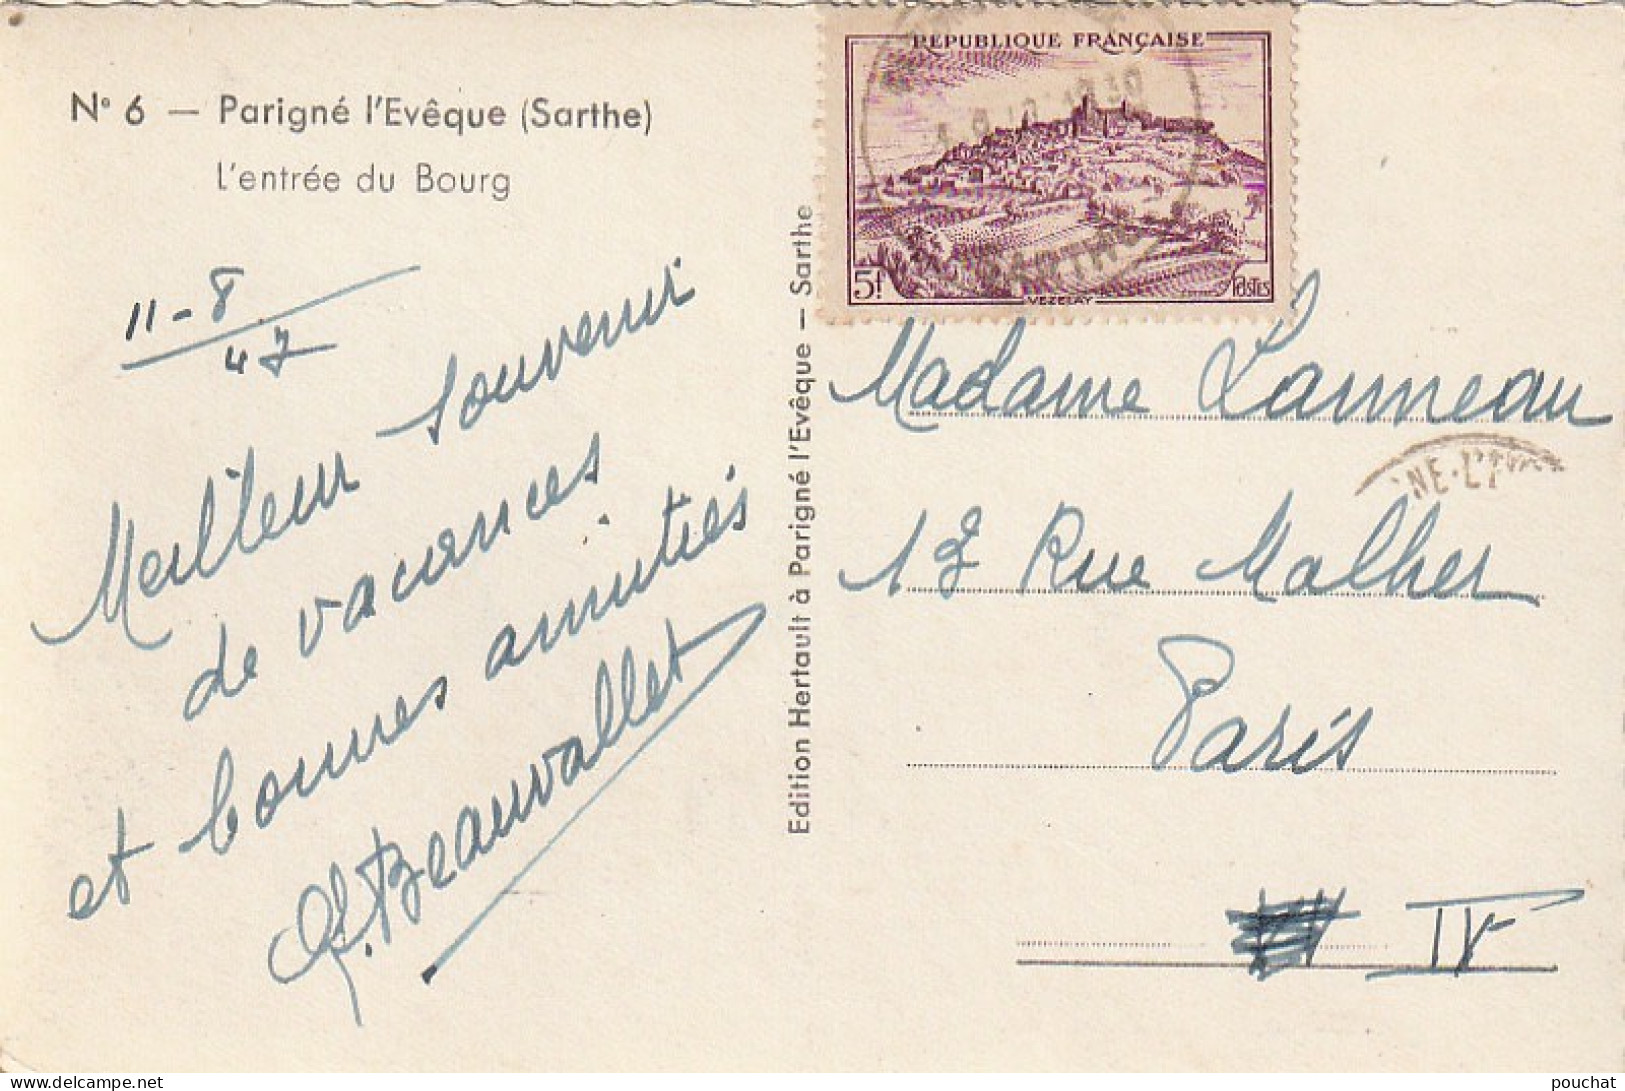 N° 6 — Parigné l'Evêque (Sarthe)
L'entrée du Bourg
11-8
47
Meilleur souvenir
de vacances
et bonnes amitiés
Beauvallet
Edition Hertault à Parigné l'Evêque — Sarthe
REPUBLIQUE FRANÇAISE
5f
VEZELAY
Postes
SARTHE
Madame Lanneau
NE-L'
12 Rue Malher
Paris
IV
delcampe.net
pouchat